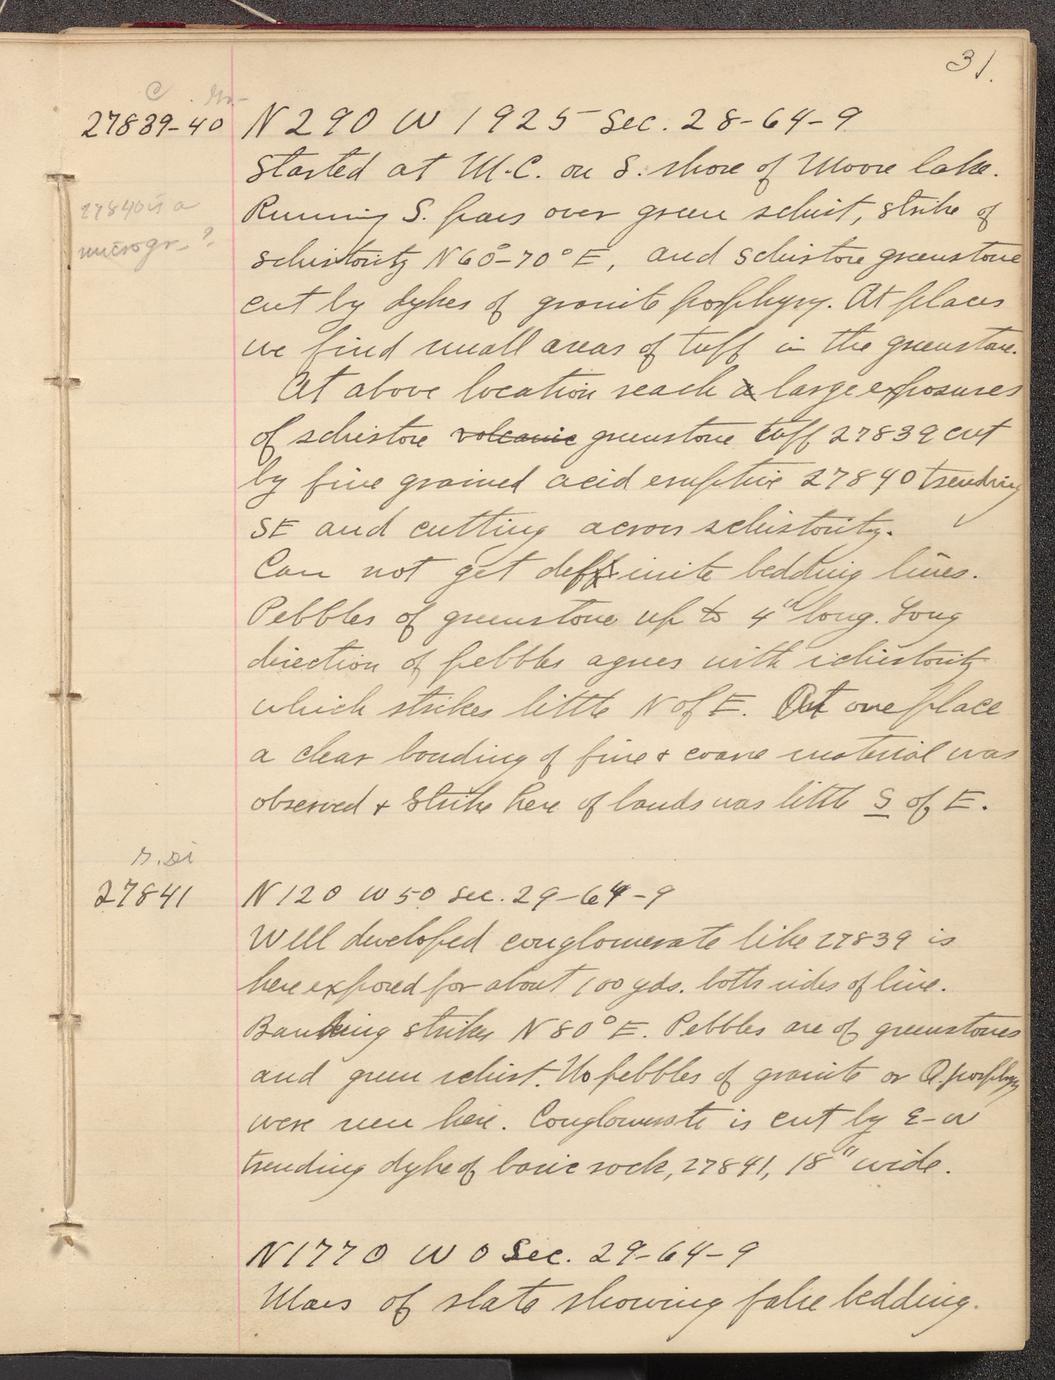 31.
C
27839-40 N 290 W 1925 Sec. 28-64-9
Started at M.C. on S. shore of Moore lake.
27840 is a
Running S. pass over green schist, strike of
microgr- ?
schistosity N60°-70°E, and schistose greenstone
cut by dykes of granite porphyry. At places
we find small areas of tuff in the greenstone.
At above location reach a large exposures
of schistose volcanic greenstone tuff 27839 cut
by fine grained acid eruptive 27840 trending
SE and cutting across schistosity.
Can not get definite bedding lines.
Pebbles of greenstone up to 4" long. Long
direction of pebbles agrees with schistosity
which strikes little N of E. At one place
a clear banding of fine & coarse material was
observed & strike here of bands was little S of E.
27841 N 120 W 50 Sec. 29-64-9
Well developed conglomerate like 27839 is
here exposed for about 100 yds. both sides of line.
Banding strikes N 80° E. Pebbles are of greenstones
and green schist. No pebbles of granite or Q. porphyry
were seen here. Conglomerate is cut by E-W
trending dyke of basic rock, 27841, 18" wide.
N 1770 W 0 Sec. 29-64-9
Mass of slate showing false bedding.